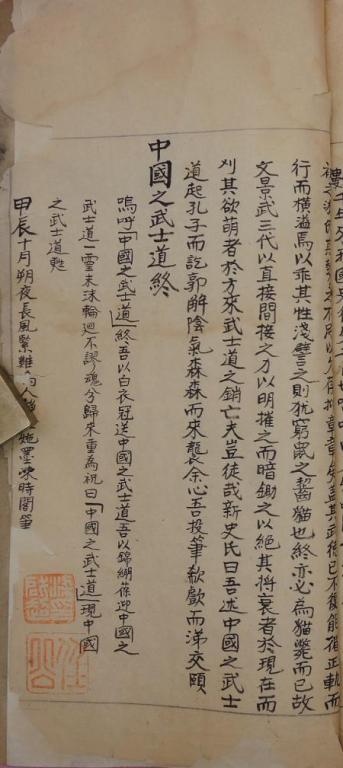 其武德已不復能循正軌而
行而橫溢焉以乖其性淺譬之則猶窮鼠之齧貓也終亦必為貓斃而已故
文景武三代以直接間接之力以明摧之而暗鋤之以絕其將衰者於現在而
刈其欲萌者於方來武士道之銷亡夫豈徒哉新史氏曰吾述中國之武士
道起孔子而訖郭解陰氣森森而來襲余心吾投筆欷歔而涕交頤
中國之武士道終
嗚呼「中國之武士道」終吾以白衣冠送中國之武士道吾以錦繃褓迎中國之
武士道一靈未沫輪迴不謬魂兮歸來重為祝曰「中國之武士道」現中國
之武士道甦
甲辰十月朔夜長風緊雞墨凍時閣筆
任公